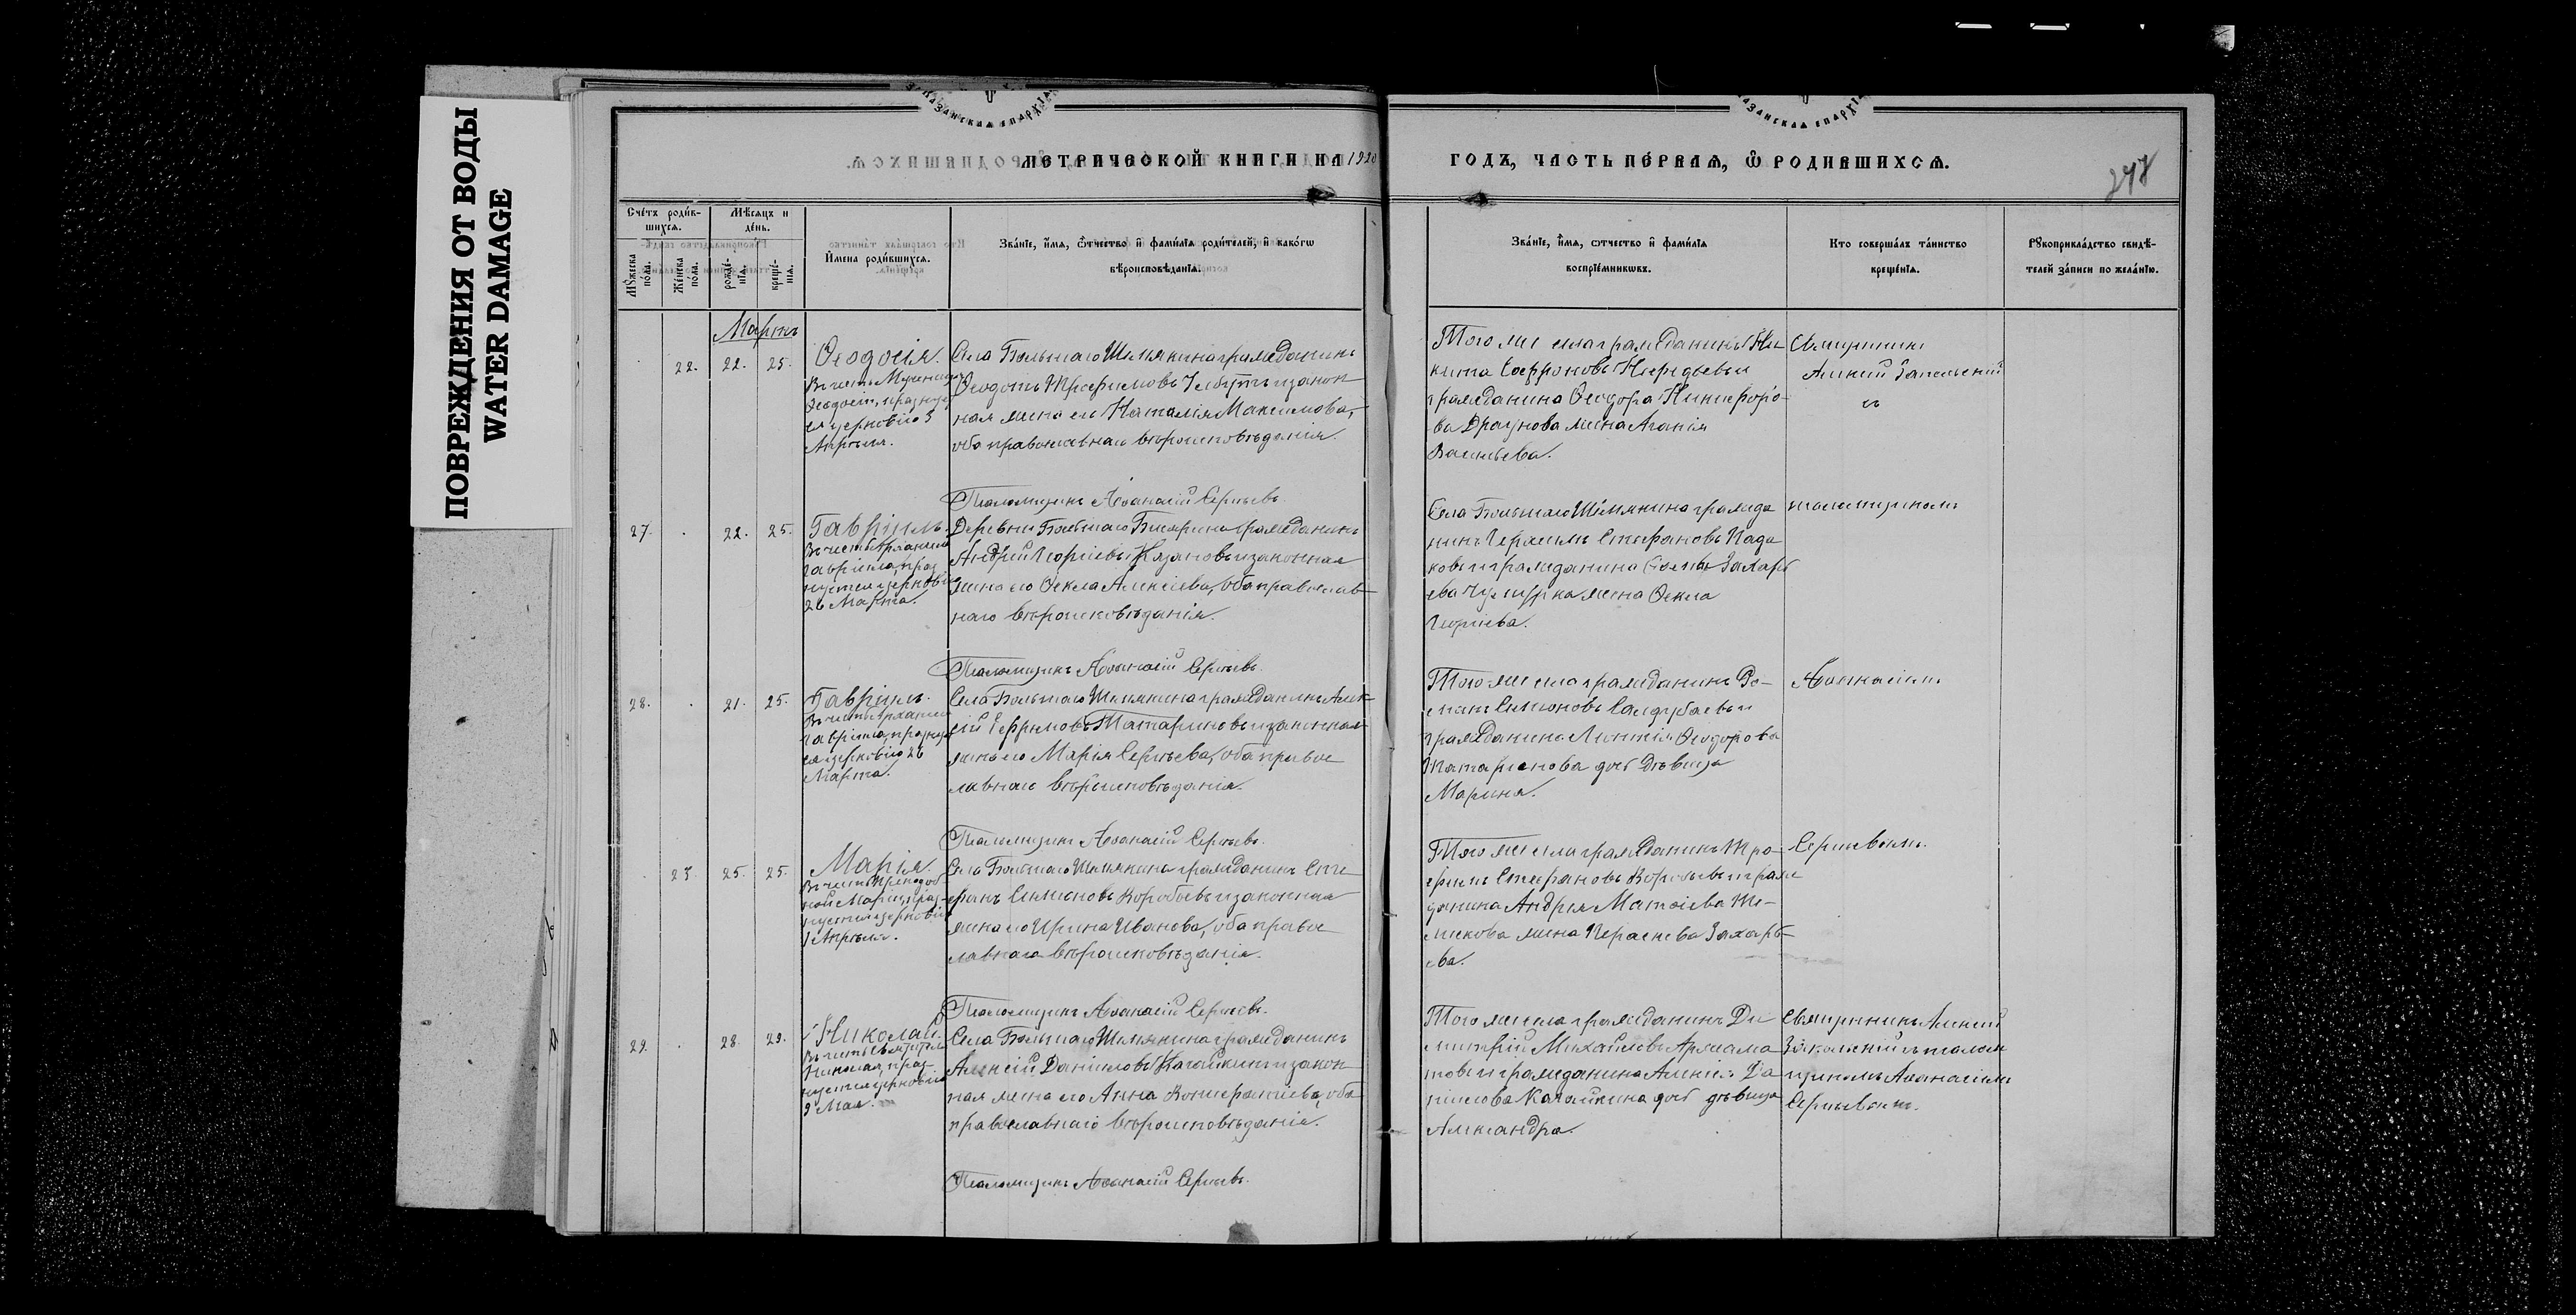 ПОВРЕЖДЕНИЯ ОТ ВОДЫ
WATER DAMAGE
КАЗАНСКАѦ ЕПАРХІѦ
КАЗАНСКАѦ ЕПАРХІѦ
МЕТРИЧЕСКОЙ КНИГИ НА 1920
ГОДЪ, ЧАСТЬ ПЕ́РВАѦ, Ѽ РОДИВШИХСѦ.
248
Сче́тъ роди́в-
шихсѧ.
Мѣ́сѧцъ и
де́нь.
Мꙋ́жеска
по́ла.
Же́нска
по́ла.
рожде́-
нїѧ.
креще́-
нїѧ.
И҆мена роди́вшихсѧ.
Зва́нїе, и҆́мѧ, ѻ҆́тчество и҆ фами́лїѧ роди́телей, и҆ како́гѡ
вѣроисповѣ́данїѧ.
Зва́нїе, и҆́мѧ, ѻ҆тчество и҆ фами́лїѧ
воспрїе́мникѡвъ.
Кто соверша́лъ та́инство
креще́нїѧ.
Рꙋкоприкла́дство свидѣ́-
телей за́писи по жела́нїю.
Мартъ
22. 22. 25. Ѳеодосія.
Въ честь Мученицы
Ѳеодосіи, празнуе
ся церковію 3
Апрѣля.
Села Большаго Шемякина гражданинъ
Ѳеодотъ Трофимовъ и закон
ная жена его Наталія Максимова,
оба православнаго вѣроисповѣданія.
Псаломщикъ Аѳанасій Сергѣевъ.
Того же села гражданинъ Ни
кита Софроновъ и
гражданина Ѳеодора Никифоро-
ва Драгунова жена Агапія
Васильева.
Священникъ
Алексій Закольскій
съ
27. . 22. 25. Гавріилъ.
Въ честь Архангела
Гавріила, праз
нуется церковію
26 Марта.
Деревни Большаго гражданинъ
Андрей Георгіевъ Казаковъ и законная
жена его Ѳекла Алексіева, оба православ-
наго вѣроисповѣданія.
Псаломщикъ Аѳанасій Сергѣевъ.
Села Большаго Шемякина гражда
нинъ Герасимъ Стефановъ
ковъ и гражданина Захарь
ева жена Ѳекла
Георгіева.
псаломщикомъ
28. . 21. 25. Гавріилъ.
Въ честь Архангела
Гавріила, празнует
ся церковію 26
Марта.
Села Большаго Шемякина гражданинъ Алек-
сій Ефремовъ Татариновъ и законная
жена его Марія Сергѣева, оба правос
лавнаго вѣроисповѣданія.
Псаломщикъ Аѳанасій Сергѣевъ.
Того же села гражданинъ Ро-
манъ Симеоновъ и
гражданина Леонтія Ѳеодорова
Татаринова дочь дѣвица
Марина.
Аѳанасіемъ
23. 25. 25. Марія.
Въ честь Преподоб
ной Маріи, праз-
нуется церковію
1 Апрѣля.
Села Большаго Шемякина гражданинъ Сте
фанъ Симеоновъ Коробовъ и законная
жена его Ирина Иванова, оба правос
лавнаго вѣроисповѣданія.
Псаломщикъ Аѳанасій Сергѣевъ.
Того же села гражданинъ Тро-
фимъ Стефановъ Коробовъ и граж
данина Андрея Матѳіева
жена Параскева Захарь-
ева.
Сергѣевымъ.
29. . 28. 29. Николай.
Въ честь Святителя
Николая, праз-
нуется церковію
9 Мая.
Села Большаго Шемякина гражданинъ
Алексій Даніиловъ и закон
ная жена его Анна оба
православнаго вѣроисповѣданія.
Псаломщикъ Аѳанасій Сергѣевъ.
Того же села гражданинъ Ди
митрій Михайловъ
и гражданина Алексія Да
ніилова дочь дѣвица
Александра.
Священникъ Алексій
Закольскій съ псалом
щикомъ Аѳанасіемъ
Сергѣевымъ.